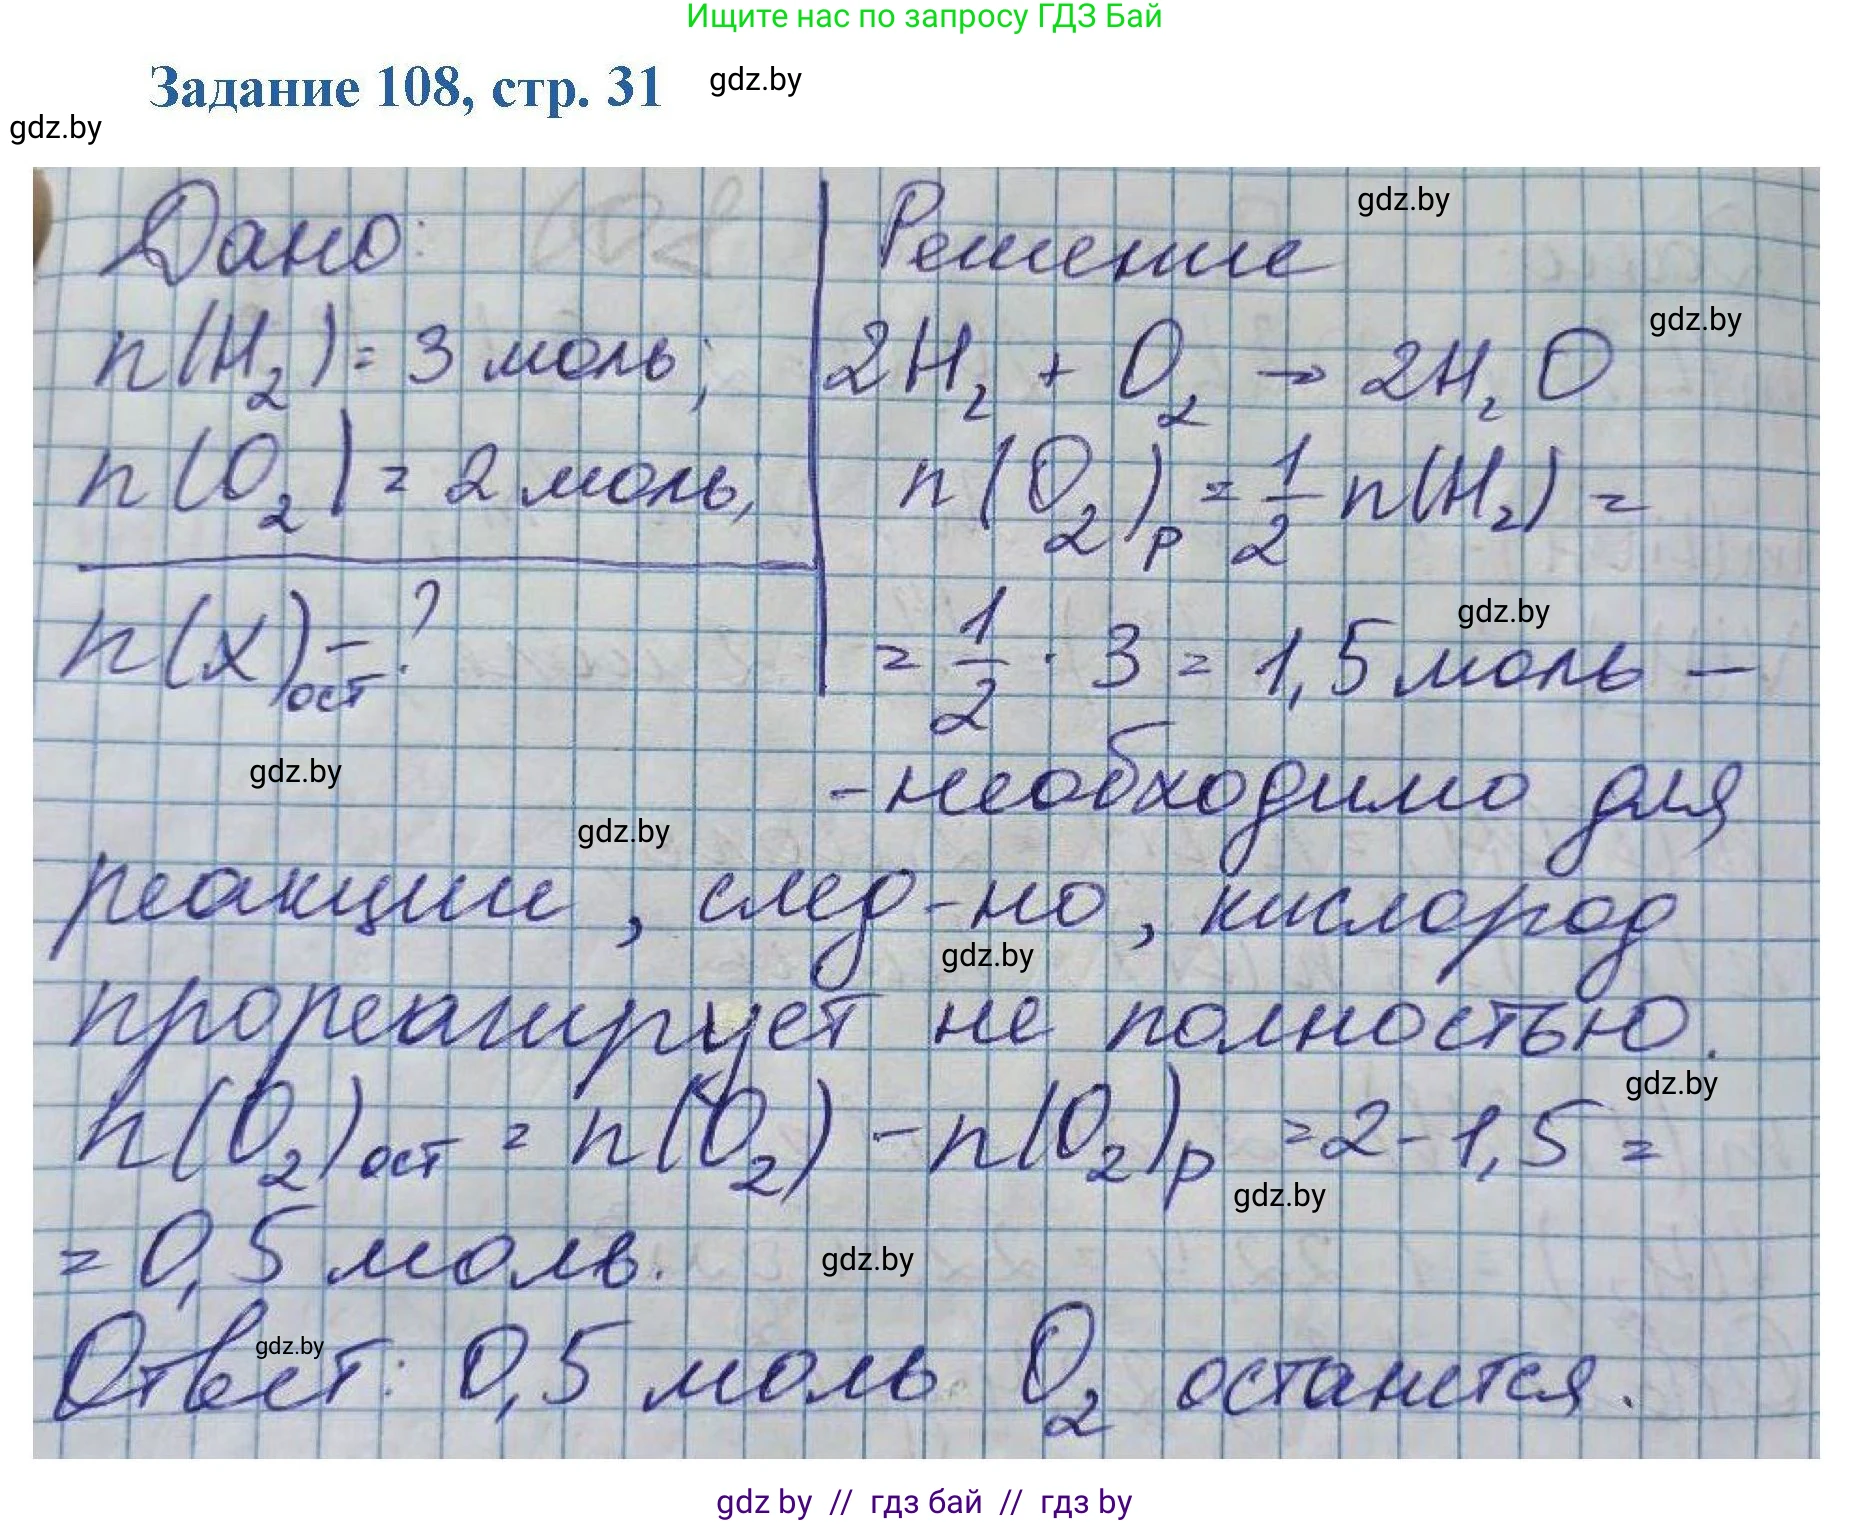 Ищите нас по запросу ГДЗ Бай
Задание 108, стр. 31
gdz.by
gdz.by
Дано:
n(H₂) = 3 моль;
n(O₂) = 2 моль,
n(x)ост - ?
Решение
gdz.by
2H₂ + O₂ → 2H₂O
gdz.by
n(O₂)р = 1/2 n(H₂) =
= 1/2 · 3 = 1,5 моль –
gdz.by
- необходимо для
gdz.by
gdz.by
реакции, след-но, кислород
gdz.by
прореагирует не полностью.
gdz.by
n(O₂)ост = n(O₂) - n(O₂)р = 2 - 1,5 =
gdz.by
= 0,5 моль.
gdz.by
Ответ: 0,5 моль O₂ останется.
gdz.by
gdz by // гдз бай // гдз by